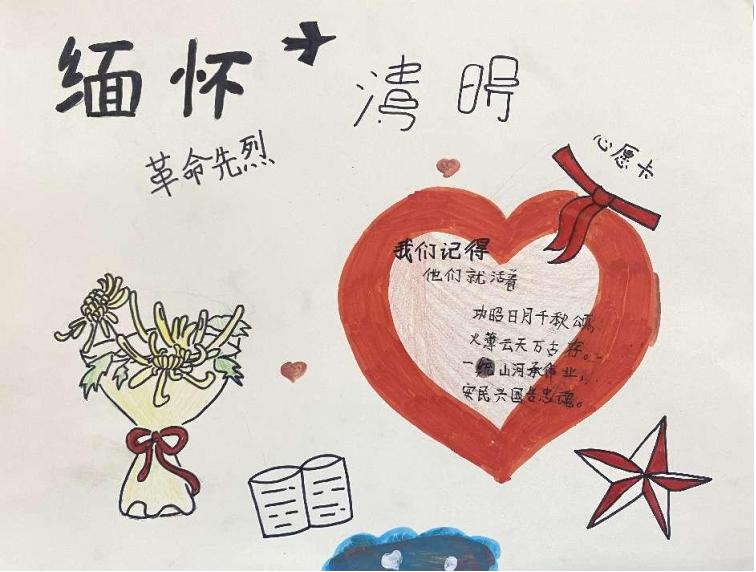 缅怀
清明
革命先烈
心愿卡
我们记得
他们就活着
功昭日月千秋颂,
义薄云天万古存。
一统山河承伟业,
安民兴国告忠魂。